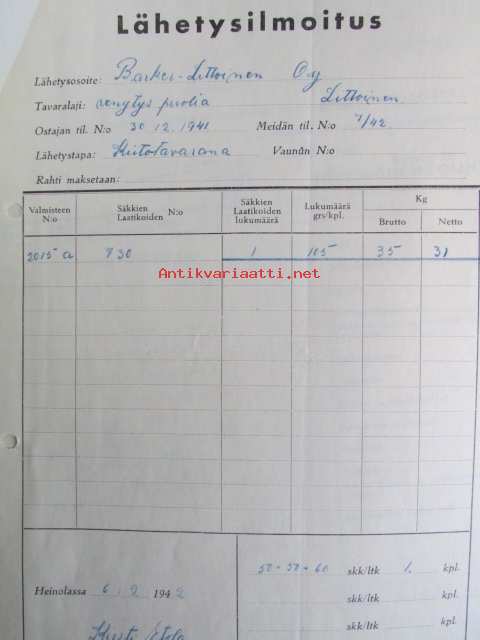 Lähetysilmoitus
Lähetysosoite: Barker-Littoinen Oy
Tavaralaji: venytys puolia Littoinen
Ostajan til. N:o 30.12.1941 Meidän til. N:o 7/42
Lähetystapa: Kiitotavarana Vaunun N:o
Rahti maksetaan:
Valmisteen N:o Säkkien Laatikoiden N:o Säkkien Laatikoiden lukumäärä Lukumäärä grs/kpl. Kg Brutto Netto
2015 a 730 1 105 35 31
Antikvariaatti.net
50-50+60 skk/ltk 1. kpl.
Heinolassa 6/2 1942 skk/ltk kpl.
skk/ltk kpl.